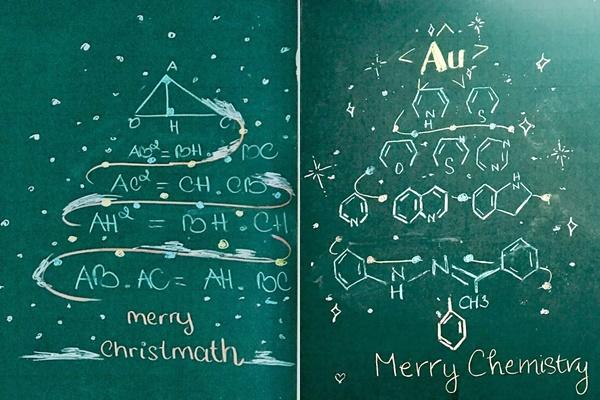 A
B H C
AB² = BH . BC
AC² = CH . CB
AH² = BH . CH
AB . AC = AH . BC
merry
christmath
< Au >
N
H
S
O
S
N
N
N
N
H
N
N
N
H
N
CH3
Merry Chemistry